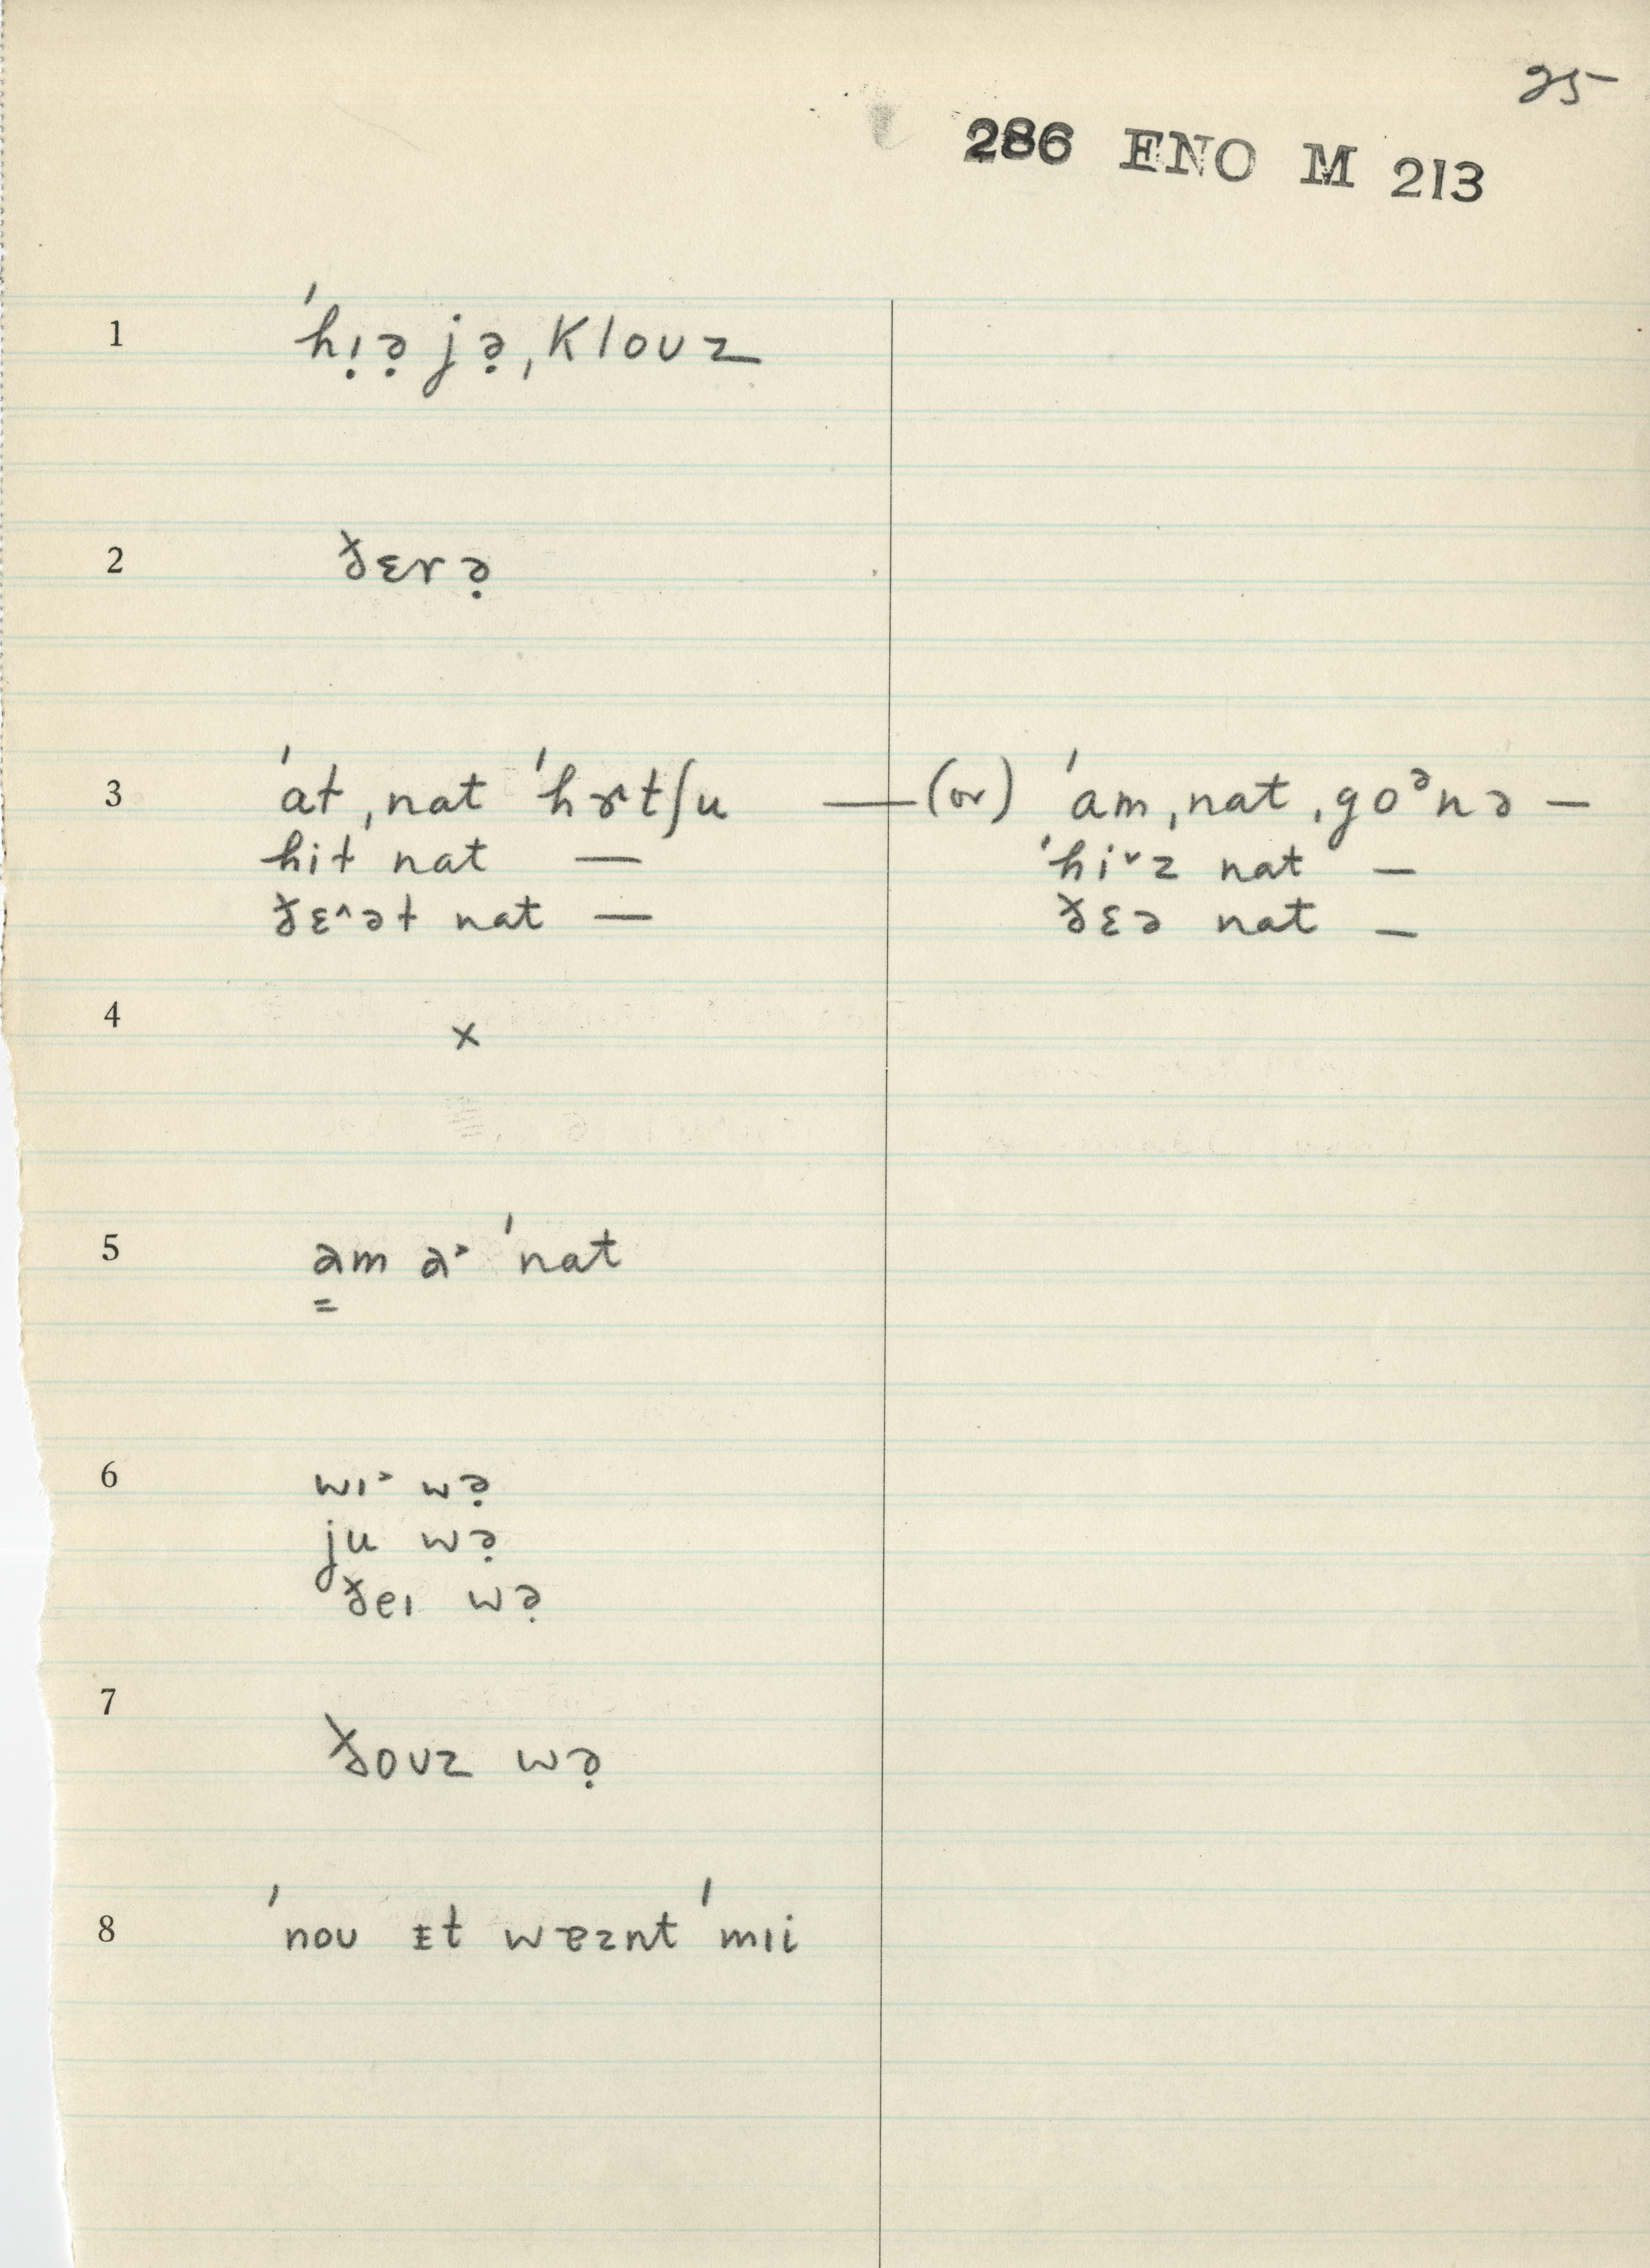 25
286 ENO M 213
1 ˈhị̣ə̣ jə̣ˌklouz
2 ðɛrə̣
3 ˈaɫˌnat ˈhɝtʃu — (or) ˈamˌnatˌgoᵊnə —
hiɫ nat — ˈhi˅z nat —
ðɛ˄əɫ nat — ðɛə nat —
4 ×
5 a̳m a˃ ˈnat
6 wɪ˃ wə̣
ju wə̣
ðeɪ wə̣
7 ðouz wə̣
8 ˈnou ɪt wɐznt ˈmɪi